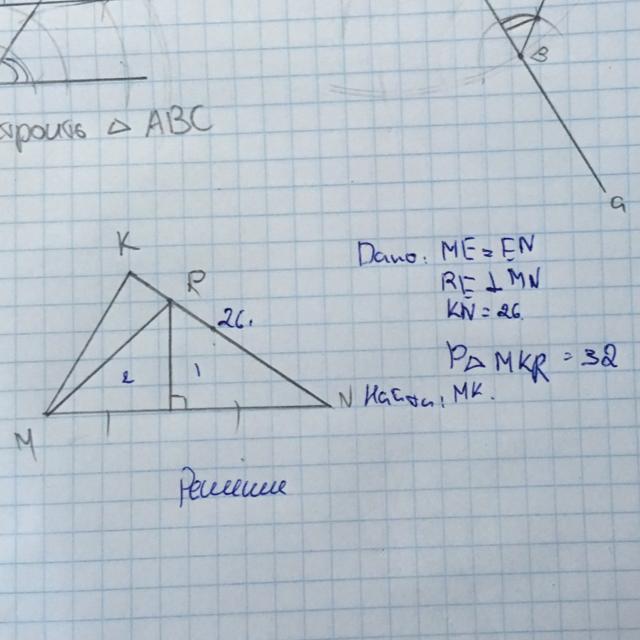 B
a
троить △ ABC
K
R
26.
2
1
M
N
Дано: ME = EN
RE ⊥ MN
KN = 26
P△ MKR = 32
Найти: MK.
Решение